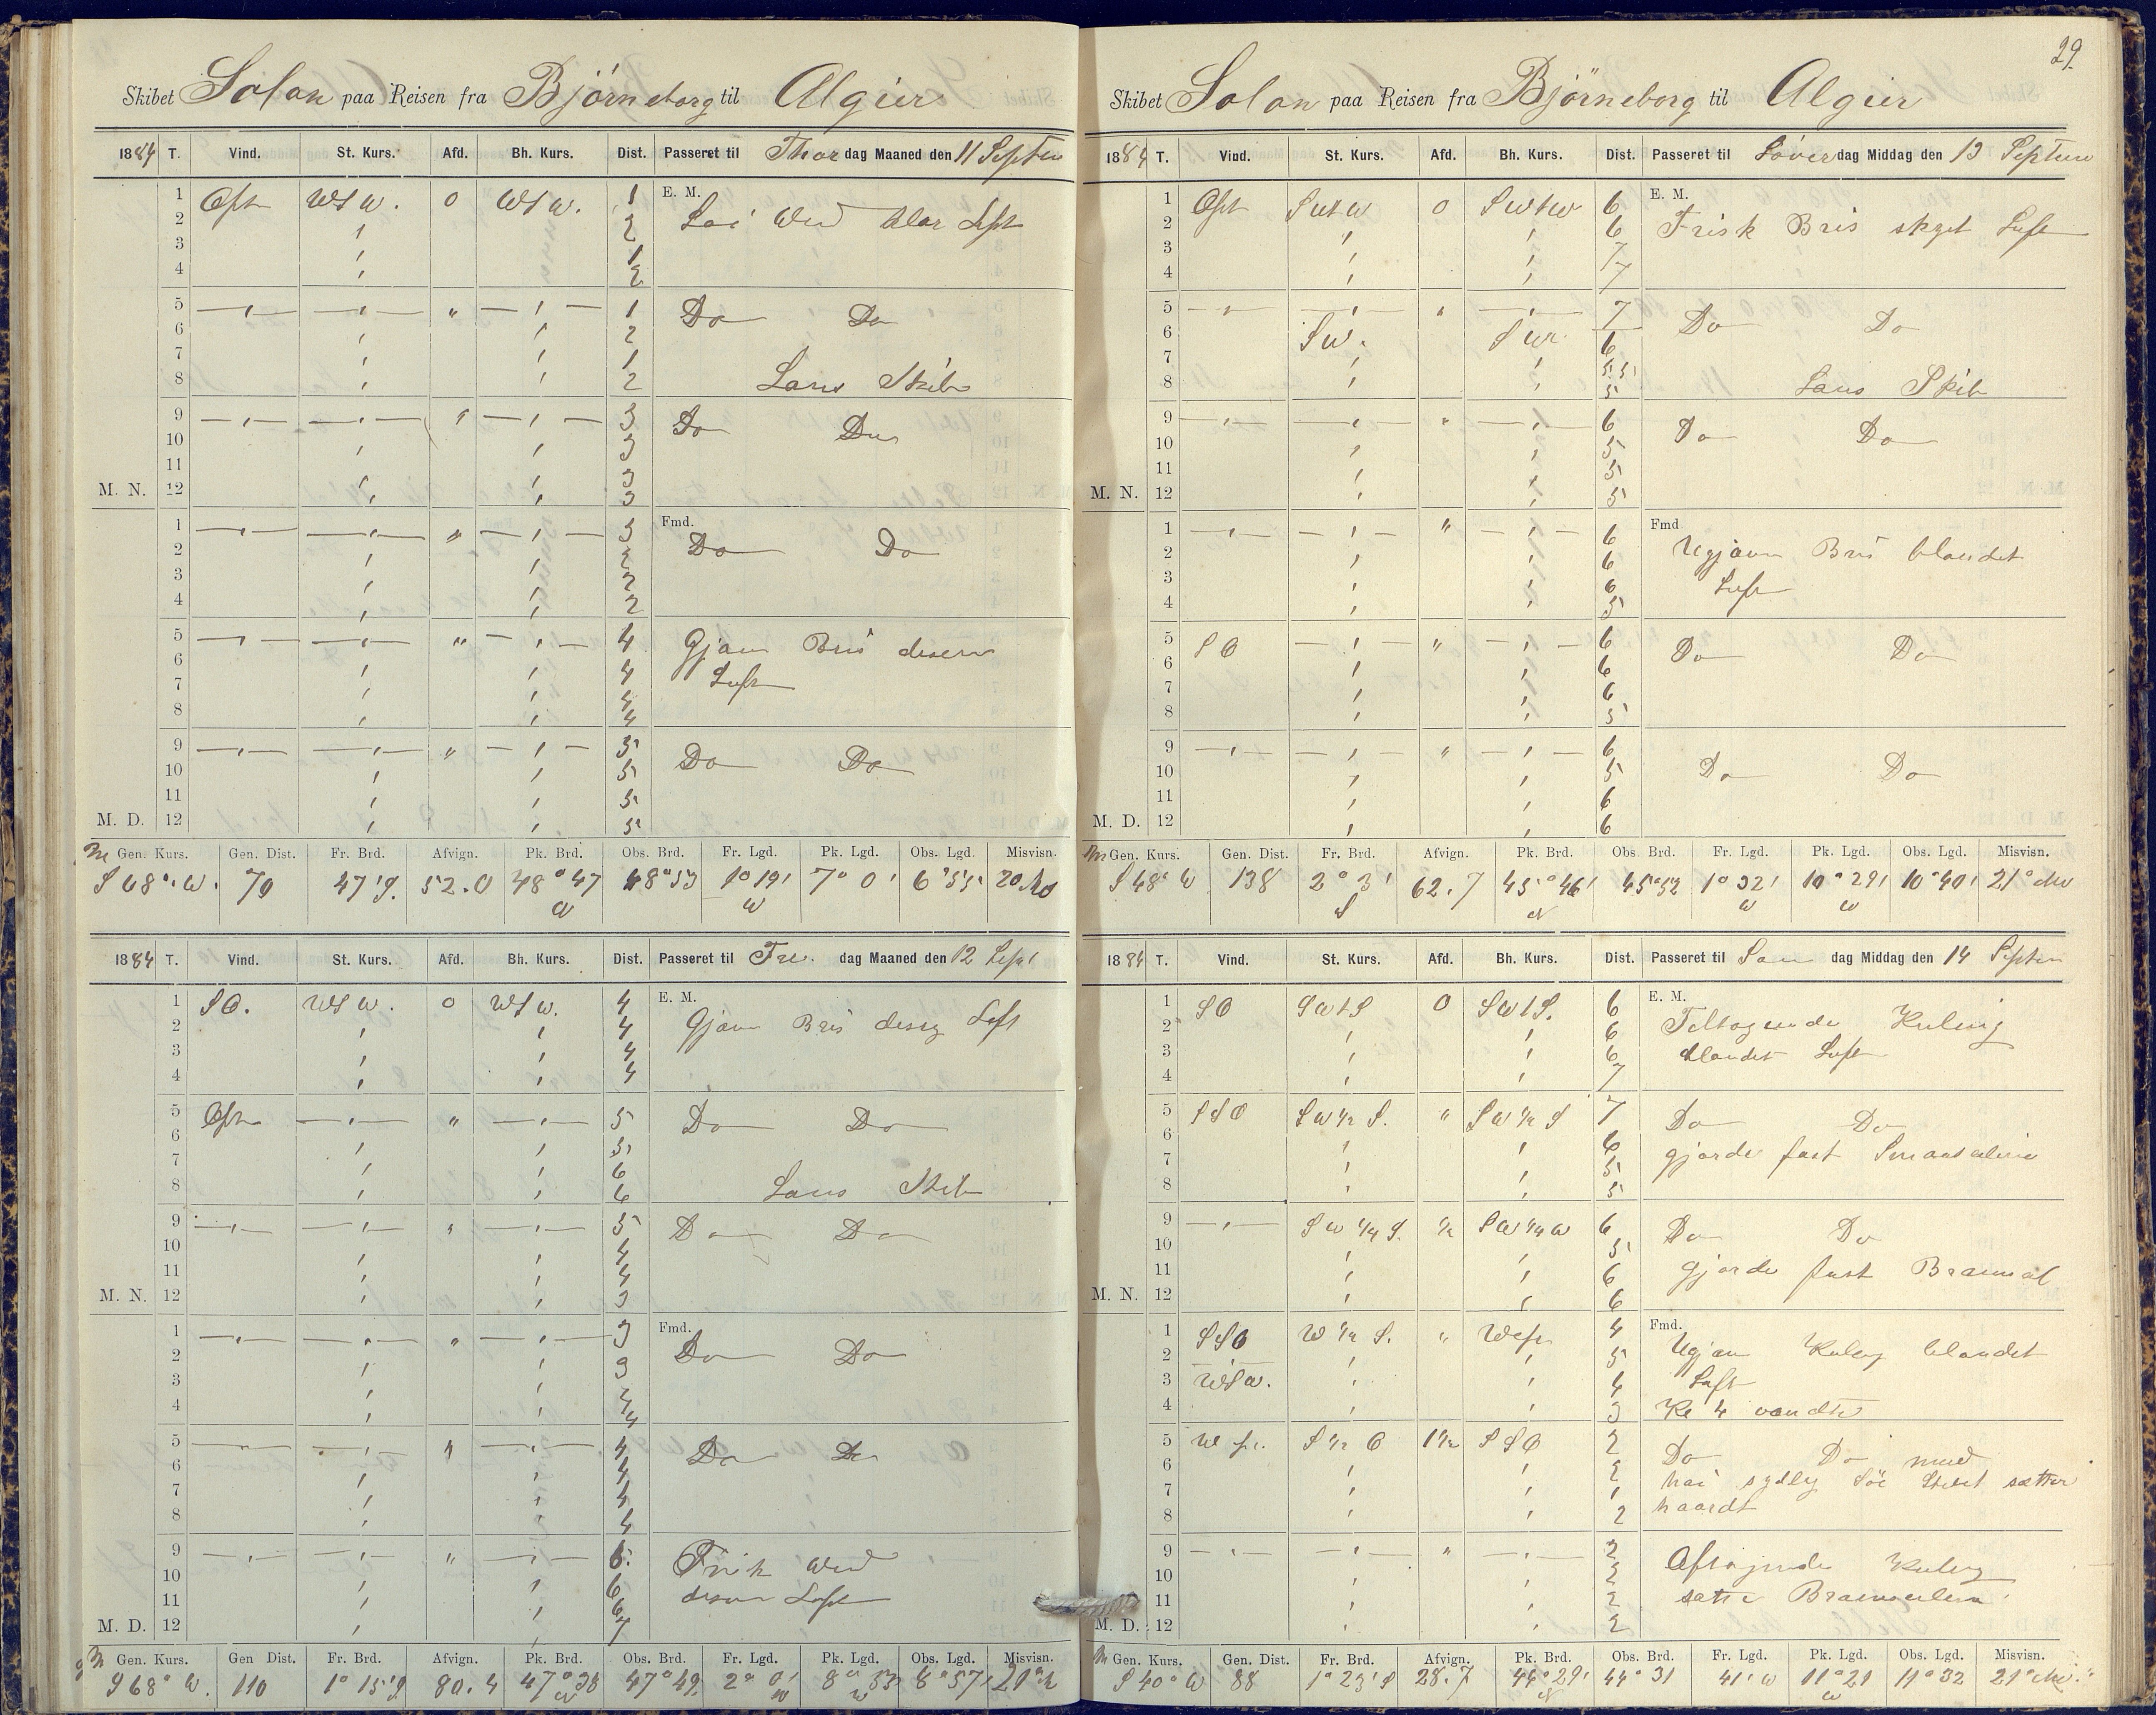 Skibet Solon paa Reisen fra Björneborg til Algier
1884 T. Vind. St. Kurs. Afd. Bh. Kurs. Dist. Passeret til Thorsdag Maaned den 11 Septbr
1 Ost WSW. 0 WSW. 1 E. M.
2 ' 2 Klar Luft
3 ' 1
4 ' 2
5 —"— —"— " —"— 1 Do Do
6 ' ' 2
7 ' ' 1
8 ' ' 2 Lens Skib
9 —"— —"— " —"— 3 Do Do
10 ' ' 3
11 ' ' 3
M. N. 12 ' ' 3
1 —"— —"— " —"— 3 Fmd.
2 ' ' 2 Do Do
3 ' ' 2
4 ' ' 2
5 —"— —"— " —"— 4 Gjævn Bris
6 ' ' 4 Luft
7 ' ' 4
8 ' ' 4
9 —"— —"— " —"— 5 Do Do
10 ' ' 5
11 ' ' 5
M. D. 12 ' ' 5
Gen. Kurs. Gen. Dist. Fr. Brd. Afvign. Pk. Brd. Obs. Brd. Fr. Lgd. Pk. Lgd. Obs. Lgd. Misvisn.
S 68° W. 70 47' S. 52.0 48° 47 N 48° 53 1° 19' W 7° 0' 6° 55'
1884 T. Vind. St. Kurs. Afd. Bh. Kurs. Dist. Passeret til Fre. dag Maaned den 12 Sept
1 SO. WSW. 0 WSW. 4 E. M.
2 ' ' 4 Gjævn Bris Luft
3 ' ' 4
4 ' ' 4
5 Ost —"— " —"— 5 Do Do
6 ' ' 5
7 ' ' 6
8 ' ' 6 Lens Skib
9 —"— —"— " —"— 5 Do Do
10 ' ' 4
11 ' ' 4
M. N. 12 ' ' 3
1 —"— —"— " —"— 3 Fmd.
2 ' ' 3 Do Do
3 ' ' 4
4 ' ' 4
5 —"— —"— " —"— 4 Do Do
6 ' ' 4
7 ' ' 4
8 ' ' 4
9 —"— —"— " —"— 6. Frisk
10 ' ' 6 Luft
11 ' ' 6
M. D. 12 ' ' 7
Gen. Kurs. Gen Dist. Fr. Brd. Afvign. Pk. Brd. Obs. Brd. Fr. Lgd. Pk. Lgd. Obs. Lgd. Misvisn.
S 68° W. 110 1° 15' S 80.4 47° 38 N 47° 49' 2° 0' W 8° 53' W 8° 57'
29.
Skibet Solon paa Reisen fra Björneborg til Algier
1884 T. Vind. St. Kurs. Afd. Bh. Kurs. Dist. Passeret til Löverdag Middag den 13 Septem
1 Ost SWtW 0 SWtW 6 E. M.
2 ' ' 6 Frisk Bris skyet Luft
3 ' ' 7
4 ' ' 7
5 —"— —"— " —"— 7 Do Do
6 SW. SW 6
7 ' ' 5.5
8 ' ' 5 Lens Skib
9 —"— —"— " —"— 6 Do Do
10 ' ' 5
11 ' ' 5
M. N. 12 ' ' 5
1 —"— —"— " —"— 6 Fmd
2 ' ' 6 Ugjævn Bris blandet
3 ' ' 6 Luft
4 ' ' 5
5 SO —"— " —"— 6 Do Do
6 ' ' 6
7 ' ' 6
8 ' ' 5
9 —"— —"— " —"— 6
10 ' ' 5 Do Do
11 ' ' 6
M. D. 12 ' ' 6
Gen. Kurs. Gen. Dist. Fr. Brd. Afvign. Pk. Brd. Obs. Brd. Fr. Lgd. Pk. Lgd. Obs. Lgd. Misvisn.
S 48° W 138 2° 3' S 62.7 45° 46' N 45° 52 1° 32' W 10° 29' W 10° 40' 21°
1884 T. Vind. St. Kurs. Afd. Bh. Kurs. Dist. Passeret til Søn dag Middag den 14 Septem
1 SO SWtS 0 SWtS. 6 E. M.
2 ' ' 6 Tiltagende Kuling
3 ' ' 6 blandet Luft
4 ' ' 7
5 SSO SW ½ S. " SW ½ S 7 Do Do
6 ' ' 6
7 ' ' 5 gjorde fast Smaaseilene
8 ' ' 5
9 —"— SW ¼ S. ½ SW ¼ W 6 Do Do
10 ' ' 5
11 ' ' 6 gjorde fast
M. N. 12 ' ' 6
1 SSO W ½ S. " West 4 Fmd.
2 —'— ' ' 5 Ugjævn Kuling blandet
3 WSW. ' ' 4 Luft
4 ' ' 3 Kl 4 vendte
5 S ½ O 1½ SSO 2 Do Do med
6 ' ' 2 sydlig Sö Skibet sætter
7 ' ' 1 haardt
8 ' ' 2
9 —"— —"— " —"— 2 Aftagende Kuling
10 ' ' 2
11 ' ' 2 satte
M. D. 12 ' ' 2
Gen. Kurs. Gen. Dist. Fr. Brd. Afvign. Pk. Brd. Obs. Brd. Fr. Lgd. Pk. Lgd. Obs. Lgd. Misvisn.
S 40° W 88 1° 23' S 28.7 44° 29' N 44° 31 41' W 11° 21 W 11° 32 21°